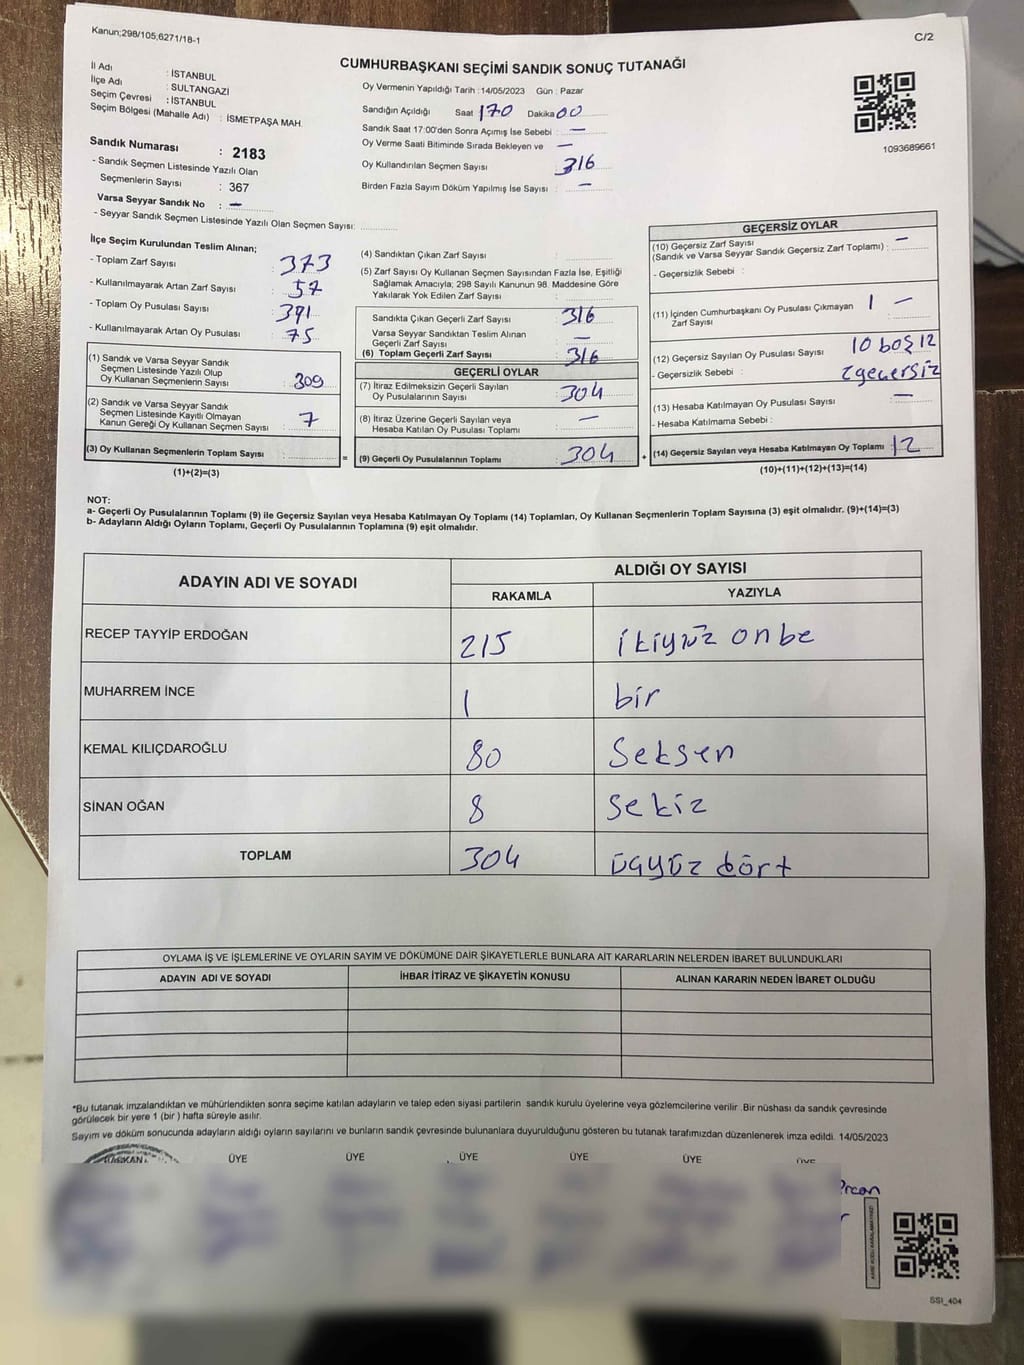 Kanun;298/105,6271/18-1
C/2
CUMHURBAŞKANI SEÇİMİ SANDIK SONUÇ TUTANAĞI
İl Adı : İSTANBUL
İlçe Adı : SULTANGAZİ
Seçim Çevresi : İSTANBUL
Seçim Bölgesi (Mahalle Adı) : İSMETPAŞA MAH.
Oy Vermenin Yapıldığı Tarih :14/05/2023 Gün : Pazar
Sandığın Açıldığı Saat 170 Dakika 00
Sandık Saat 17:00'den Sonra Açımış İse Sebebi : —
Oy Verme Saati Bitiminde Sırada Bekleyen ve —
Oy Kullandırılan Seçmen Sayısı 316
Birden Fazla Sayım Döküm Yapılmış İse Sayısı : —
1093689661
Sandık Numarası : 2183
- Sandık Seçmen Listesinde Yazılı Olan
Seçmenlerin Sayısı : 367
Varsa Seyyar Sandık No : —
- Seyyar Sandık Seçmen Listesinde Yazılı Olan Seçmen Sayısı:
İlçe Seçim Kurulundan Teslim Alınan;
- Toplam Zarf Sayısı 373
- Kullanılmayarak Artan Zarf Sayısı : 57
- Toplam Oy Pusulası Sayısı : 391
- Kullanılmayarak Artan Oy Pusulası : 75
(1) Sandık ve Varsa Seyyar Sandık
Seçmen Listesinde Yazılı Olup
Oy Kullanan Seçmenlerin Sayısı : 309
(2) Sandık ve Varsa Seyyar Sandık
Seçmen Listesinde Kayıtlı Olmayan
Kanun Gereği Oy Kullanan Seçmen Sayısı : 7
(3) Oy Kullanan Seçmenlerin Toplam Sayısı :
(1)+(2)=(3)
=
(4) Sandıktan Çıkan Zarf Sayısı :
(5) Zarf Sayısı Oy Kullanan Seçmen Sayısından Fazla İse, Eşitliği
Sağlamak Amacıyla; 298 Sayılı Kanunun 98. Maddesine Göre
Yakılarak Yok Edilen Zarf Sayısı :
Sandıkta Çıkan Geçerli Zarf Sayısı : 316
Varsa Seyyar Sandıktan Teslim Alınan
Geçerli Zarf Sayısı : —
(6) Toplam Geçerli Zarf Sayısı : 316
GEÇERLİ OYLAR
(7) İtiraz Edilmeksizin Geçerli Sayılan
Oy Pusulalarının Sayısı : 304
(8) İtiraz Üzerine Geçerli Sayılan veya
Hesaba Katılan Oy Pusulası Toplamı : —
(9) Geçerli Oy Pusulalarının Toplamı : 304
+
GEÇERSİZ OYLAR
(10) Geçersiz Zarf Sayısı —
(Sandık ve Varsa Seyyar Sandık Geçersiz Zarf Toplamı) :
- Geçersizlik Sebebi :
(11) İçinden Cumhurbaşkanı Oy Pusulası Çıkmayan 1 —
Zarf Sayısı :
(12) Geçersiz Sayılan Oy Pusulası Sayısı 10 boş 12
- Geçersizlik Sebebi : 2 geçersiz
(13) Hesaba Katılmayan Oy Pusulası Sayısı : —
- Hesaba Katılmama Sebebi :
(14) Geçersiz Sayılan veya Hesaba Katılmayan Oy Toplamı 12
(10)+(11)+(12)+(13)=(14)
NOT:
a- Geçerli Oy Pusulalarının Toplamı (9) ile Geçersiz Sayılan veya Hesaba Katılmayan Oy Toplamı (14) Toplamları, Oy Kullanan Seçmenlerin Toplam Sayısına (3) eşit olmalıdır. (9)+(14)=(3)
b- Adayların Aldığı Oyların Toplamı, Geçerli Oy Pusulalarının Toplamına (9) eşit olmalıdır.
ADAYIN ADI VE SOYADI
ALDIĞI OY SAYISI
RAKAMLA YAZIYLA
RECEP TAYYİP ERDOĞAN 215 ikiyüz onbe
MUHARREM İNCE 1 bir
KEMAL KILIÇDAROĞLU 80 Seksen
SİNAN OĞAN 8 Sekiz
TOPLAM 304 üçyüz dört
OYLAMA İŞ VE İŞLEMLERİNE VE OYLARIN SAYIM VE DÖKÜMÜNE DAİR ŞİKAYETLERLE BUNLARA AİT KARARLARIN NELERDEN İBARET BULUNDUKLARI
ADAYIN ADI VE SOYADI İHBAR İTİRAZ VE ŞİKAYETİN KONUSU ALINAN KARARIN NEDEN İBARET OLDUĞU
*Bu tutanak imzalandıktan ve mühürlendikten sonra seçime katılan adayların ve talep eden siyasi partilerin sandık kurulu üyelerine veya gözlemcilerine verilir .Bir nüshası da sandık çevresinde
görülecek bir yere 1 (bir ) hafta süreyle asılır.
Sayım ve döküm sonucunda adayların aldığı oyların sayılarını ve bunların sandık çevresinde bulunanlara duyurulduğunu gösteren bu tutanak tarafımızdan düzenlenerek imza edildi. 14/05/2023
BAŞKAN ÜYE ÜYE ÜYE ÜYE ÜYE ÜYE
SSI_404